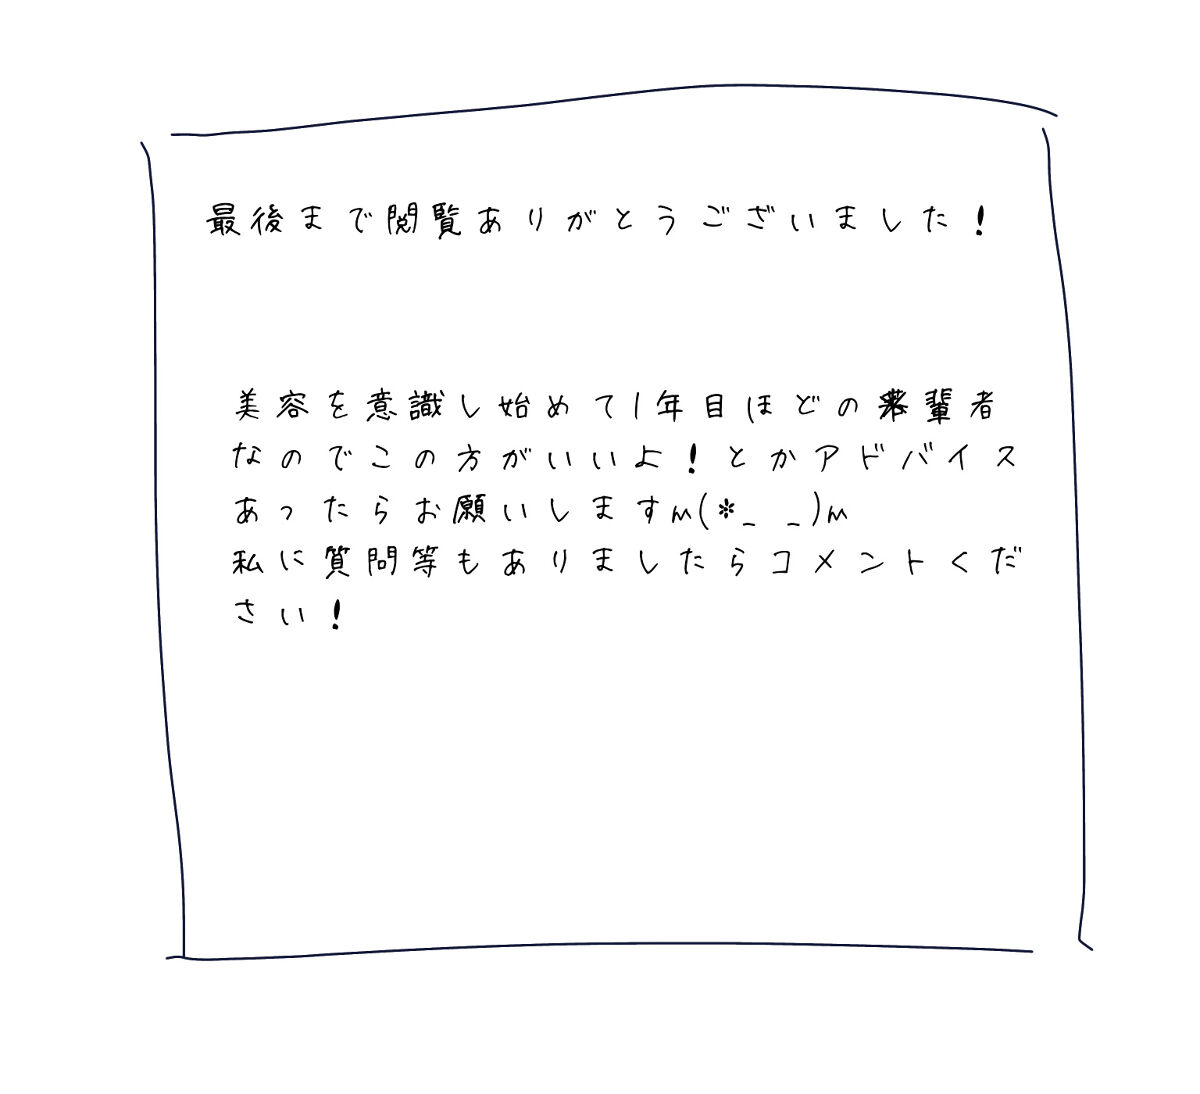 最後まで閲覧ありがとうございました!
美容を意識し始めて1年目ほどの若輩者
なのでこの方がいいよ!とかアドバイス
あったらお願いしますm(*_ _)m
私に質問等もありましたらコメントくだ
さい!